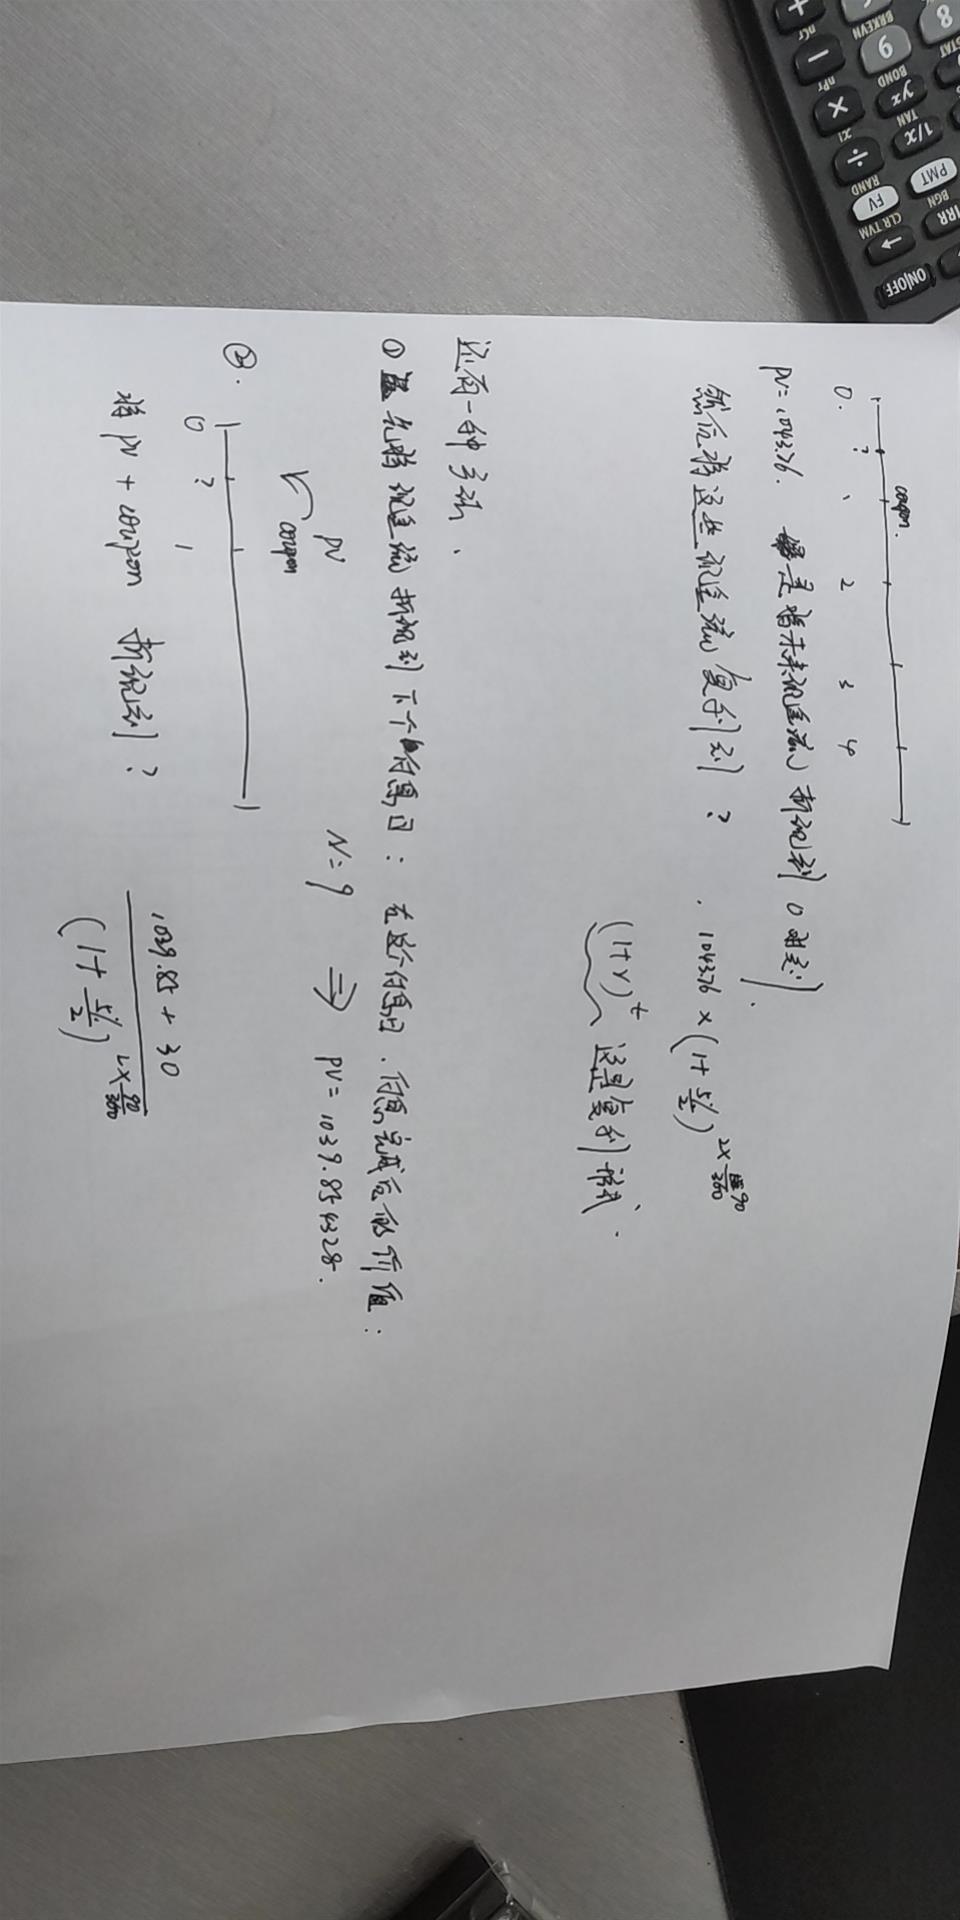 coupon.
0. ? 1 2 3 4
PV=1043.76. 是指未来现金流折现到0时刻.
然后将这些现金流复利到 ? . 1043.76 × (1+ 5%/2)^2×90/360
(1+r)^t 这是复利形式.
还有一种方法、
① 先将现金流折现到下个付息日: 在这个付息日.付息完成后的价值:
N=9 ⇒ PV=1039.854328.
PV
coupon
②.
0 ? 1
将 PV + coupon 折现到 ?
1039.85 + 30
(1+ 5%/2)^2×90/360
8
9
+
−
×
÷
yx
1/x
PMT
FV
IRR
ON|OFF
BRKEVN
BOND
nCr
nPr
x!
TAN
RAND
BGN
CLR TVM
STAT